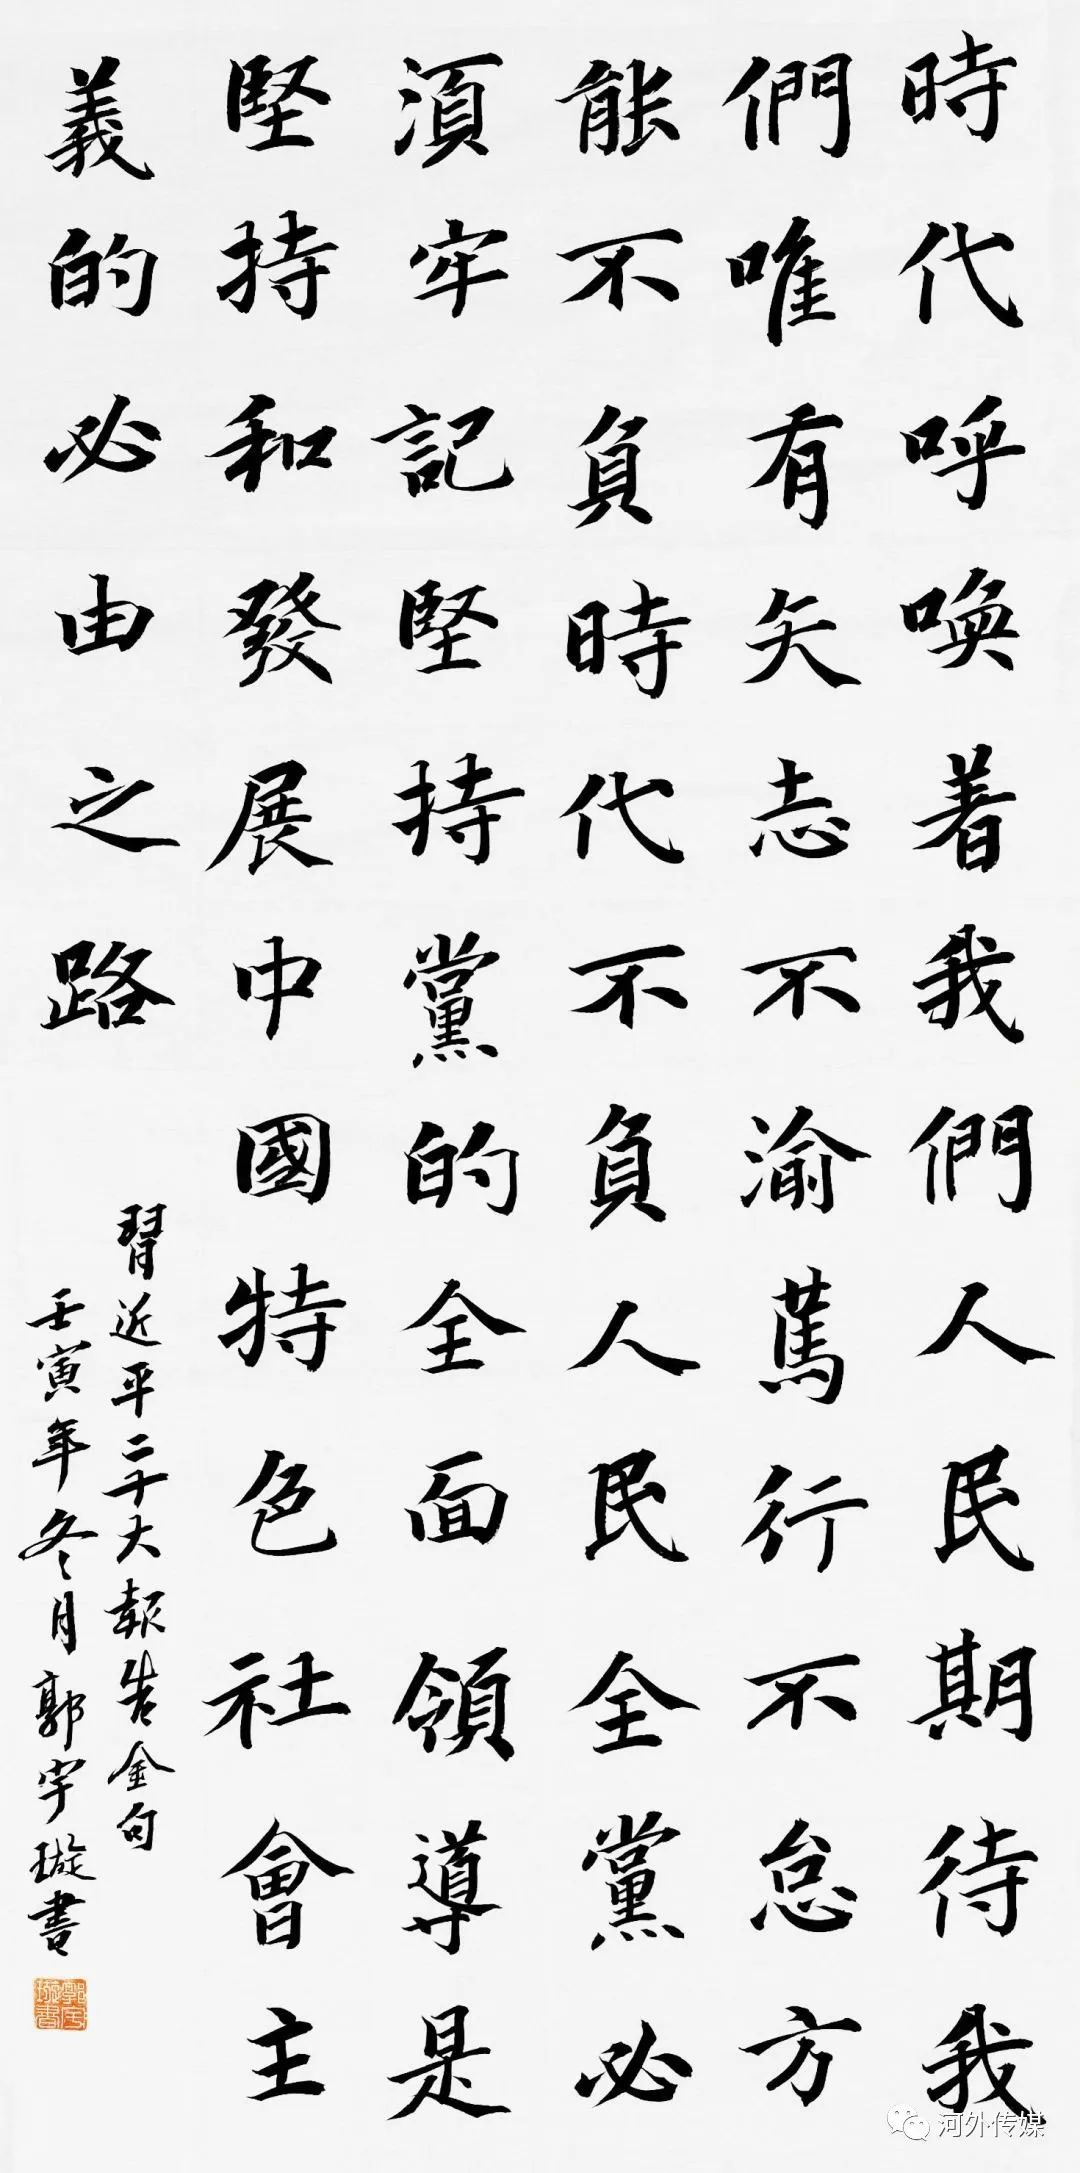 時代呼唤着我們人民期待我
們唯有矢志不渝篤行不怠方
能不負時代不負人民全黨必
須牢記堅持黨的全面領導是
堅持和發展中國特色社會主
義的必由之路
習近平二十大報告金句
壬寅年冬月郭宇璇書
郭宇璇書
河外传媒